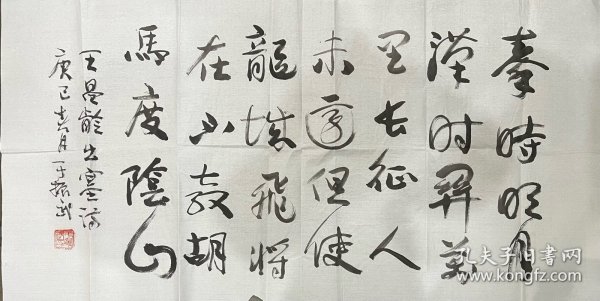 秦時明月
漢时關萬
里长征人
未還但使
龍城飛將
在不教胡
馬度陰山
王昌齡出塞诗
月 振武
孔夫子旧书网
www.kongfz.com